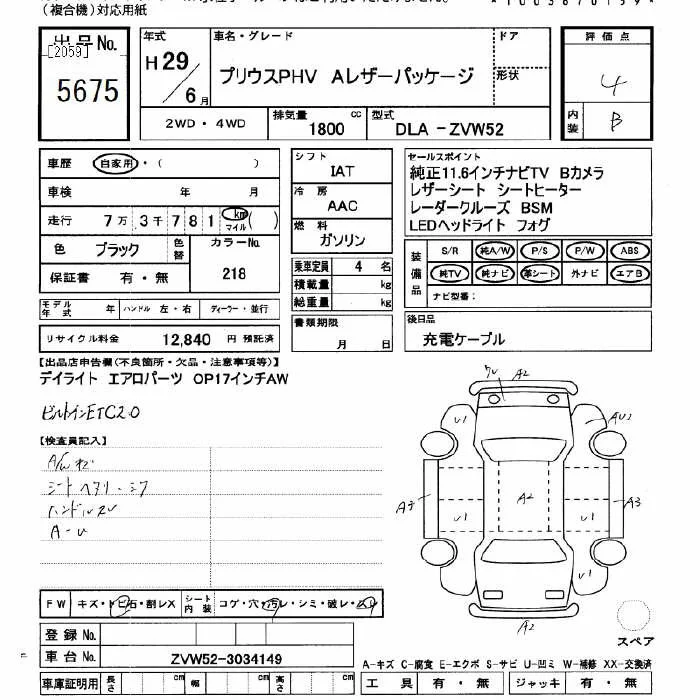 (複合機)対応用紙
出品No.
[2059]
5675
年式
H29/6月
車名・グレード
プリウスPHV Aレザーパッケージ
ドア
形状
2WD・4WD
排気量 1800 cc
型式 DLA-ZVW52
評価点
4
内装 B
車歴 自家用・( )
車検 年 月
走行 7万3千781 km マイル ( )
色 ブラック 色替 カラーNo. 218
保証書 有・無
モデル年式 年 ハンドル 左・右 ディーラー・並行
リサイクル料金 12,840 円 預託済
シフト
IAT
冷房
AAC
燃料
ガソリン
乗車定員 4 名
積載量 kg
総重量 kg
書類期限
月 日
セールスポイント
純正11.6インチナビTV Bカメラ
レザーシート シートヒーター
レーダークルーズ BSM
LEDヘッドライト フォグ
装備品
S/R 純A/W P/S P/W ABS
純TV 純ナビ 革シート 外ナビ エアB
ナビ型番:
後日品
充電ケーブル
【出品店申告欄(不良箇所・欠品・注意事項等)】
デイライト エアロパーツ OP17インチAW
ビルトインETC2.0
【検査員記入】
シートヘタリ・シワ
A-U
FW キズ・トビ石・割レX シート内装 コゲ・穴・汚レ・シミ・破レ・スレ
登録No.
車台No. ZVW52-3034149
車庫証明用 長さ cm 幅 cm 高さ cm
A2
U1
AU2
U1
A3
U1
A2
U1
A3
U1
A2
スペア
A-キズ C-腐食 E-エクボ S-サビ U-凹ミ W-補修 XX-交換済
工具 有・無 ジャッキ 有・無